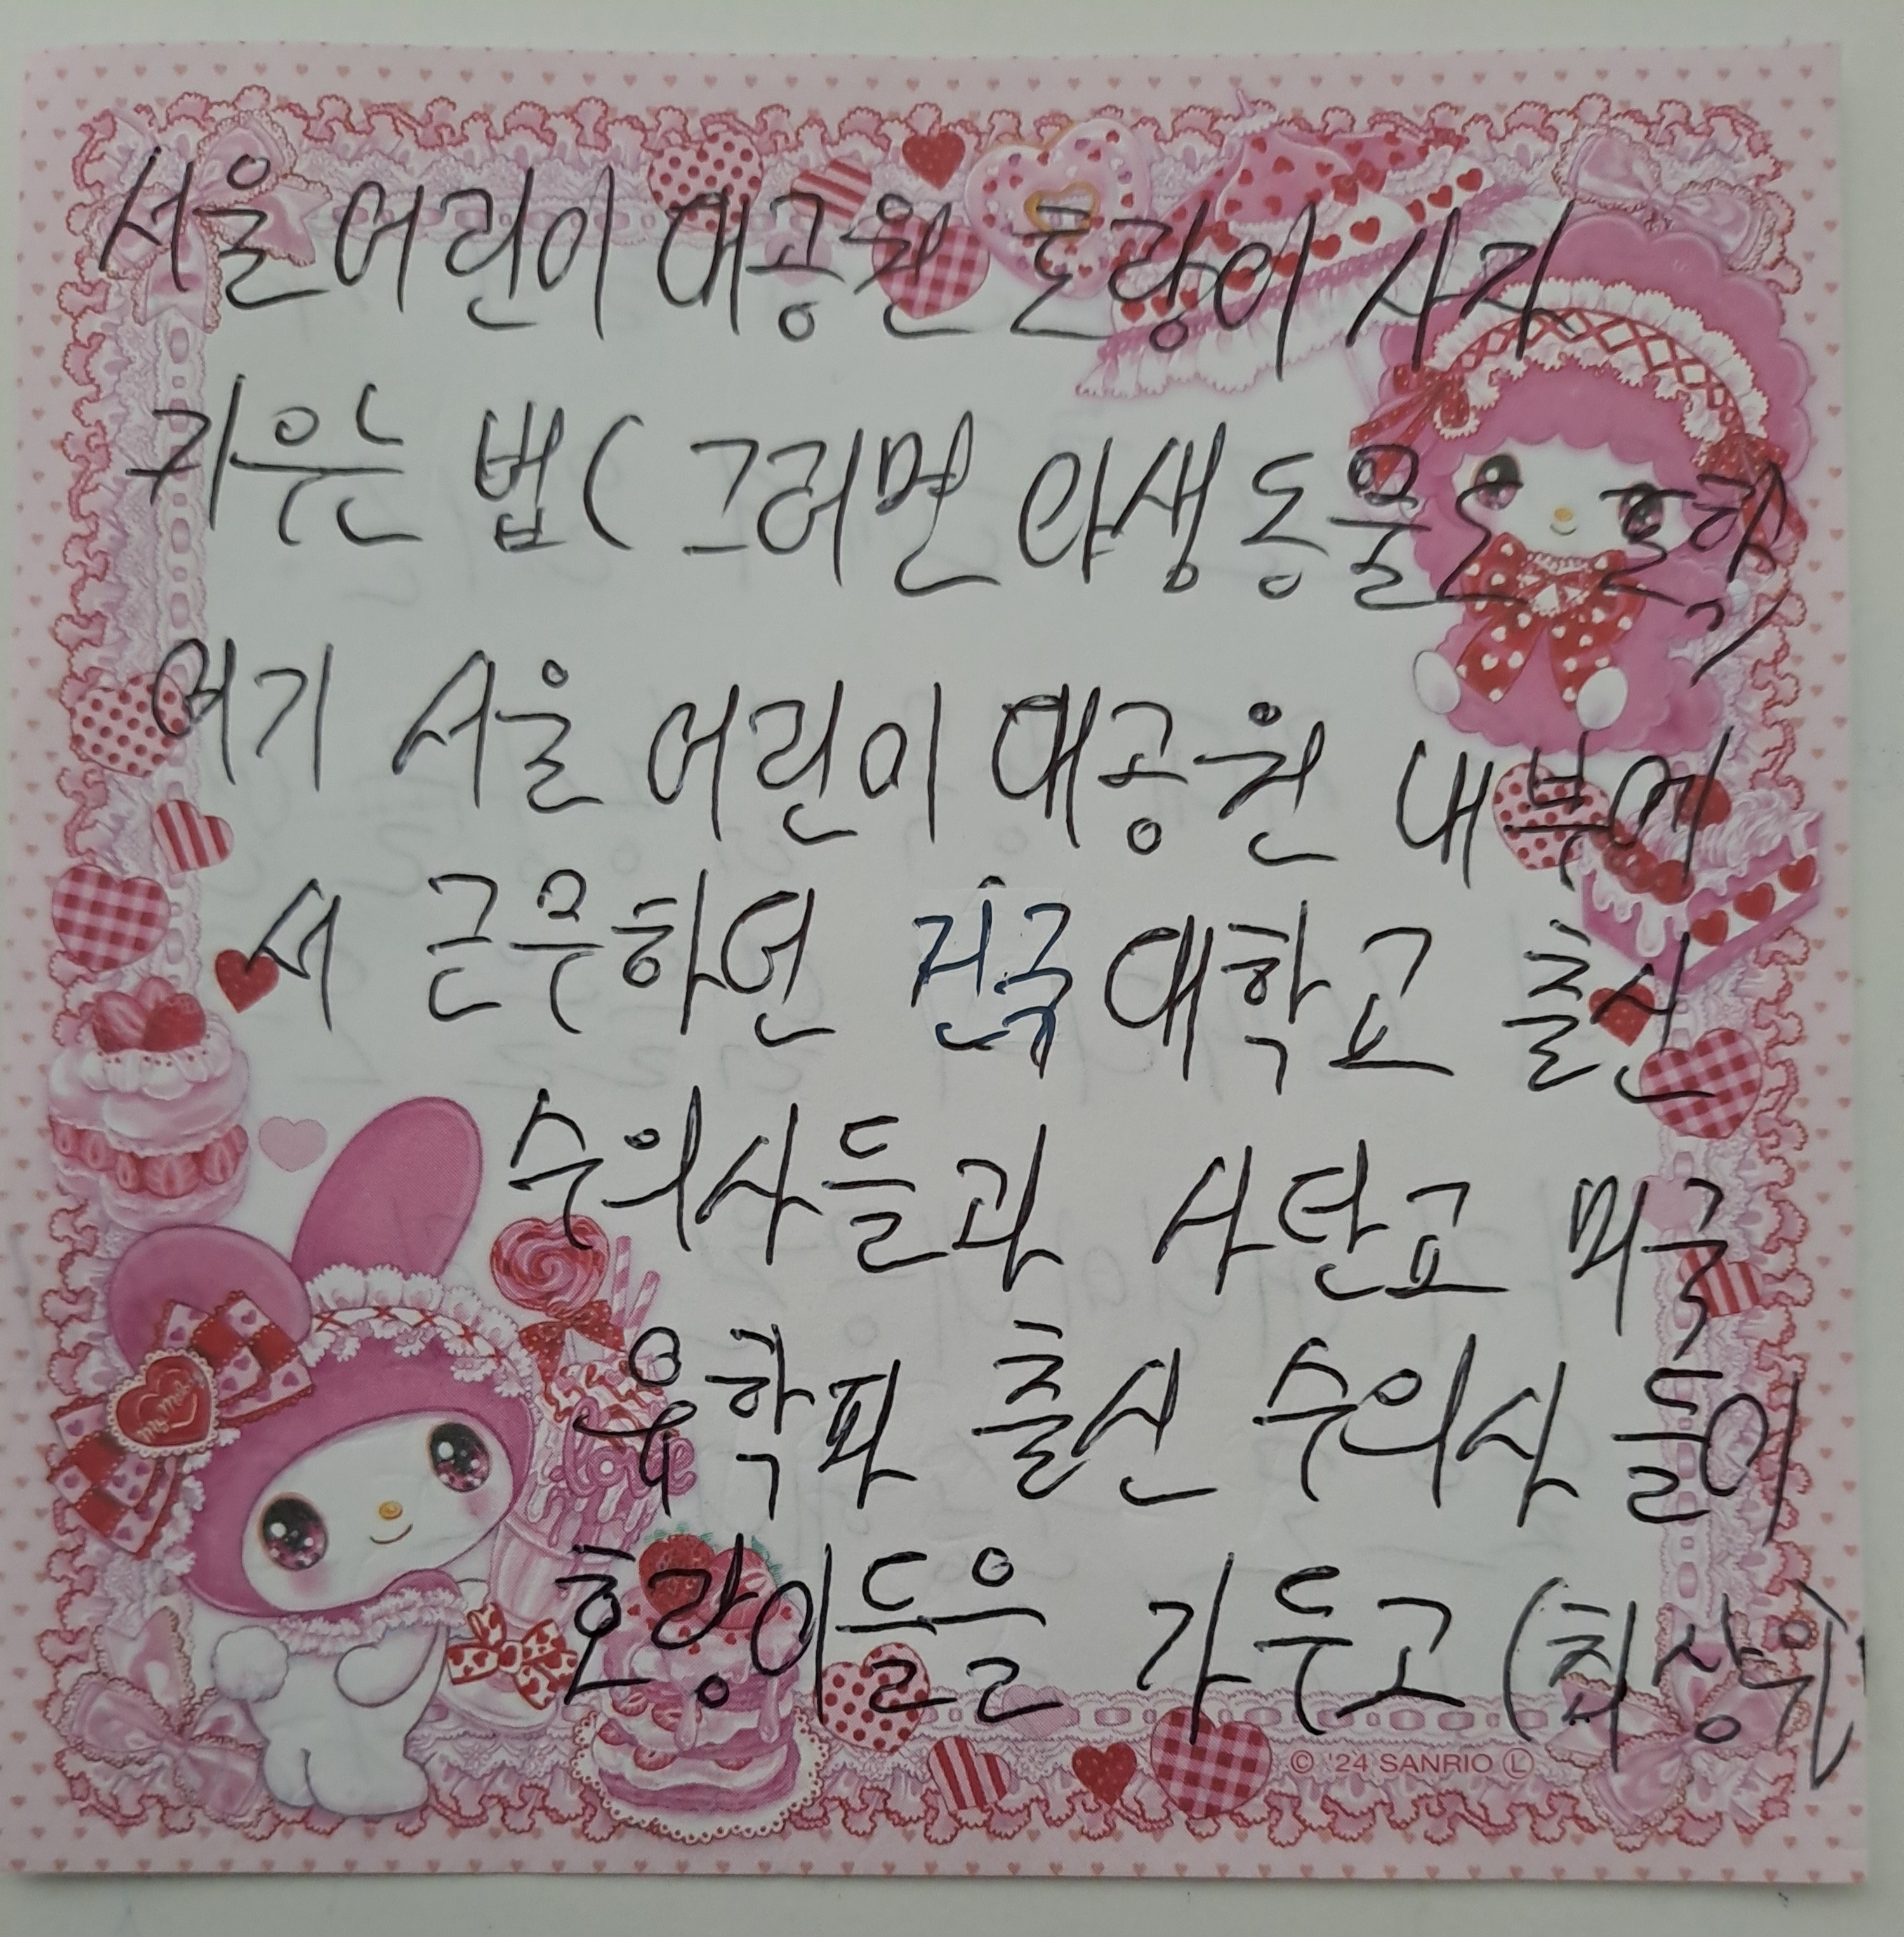 서울 어린이 대공원 호랑이 사자
키우는 법( 그러면 야생 동물은
여기 서울 어린이 대공원 내부에
서 근무하던 건국대학교 출신
수의사들과 사단고 미국
유학파 출신 수의사 들이
호랑이들을 가두고 (최상위)
© '24 SANRIO Ⓛ
My Melody
love